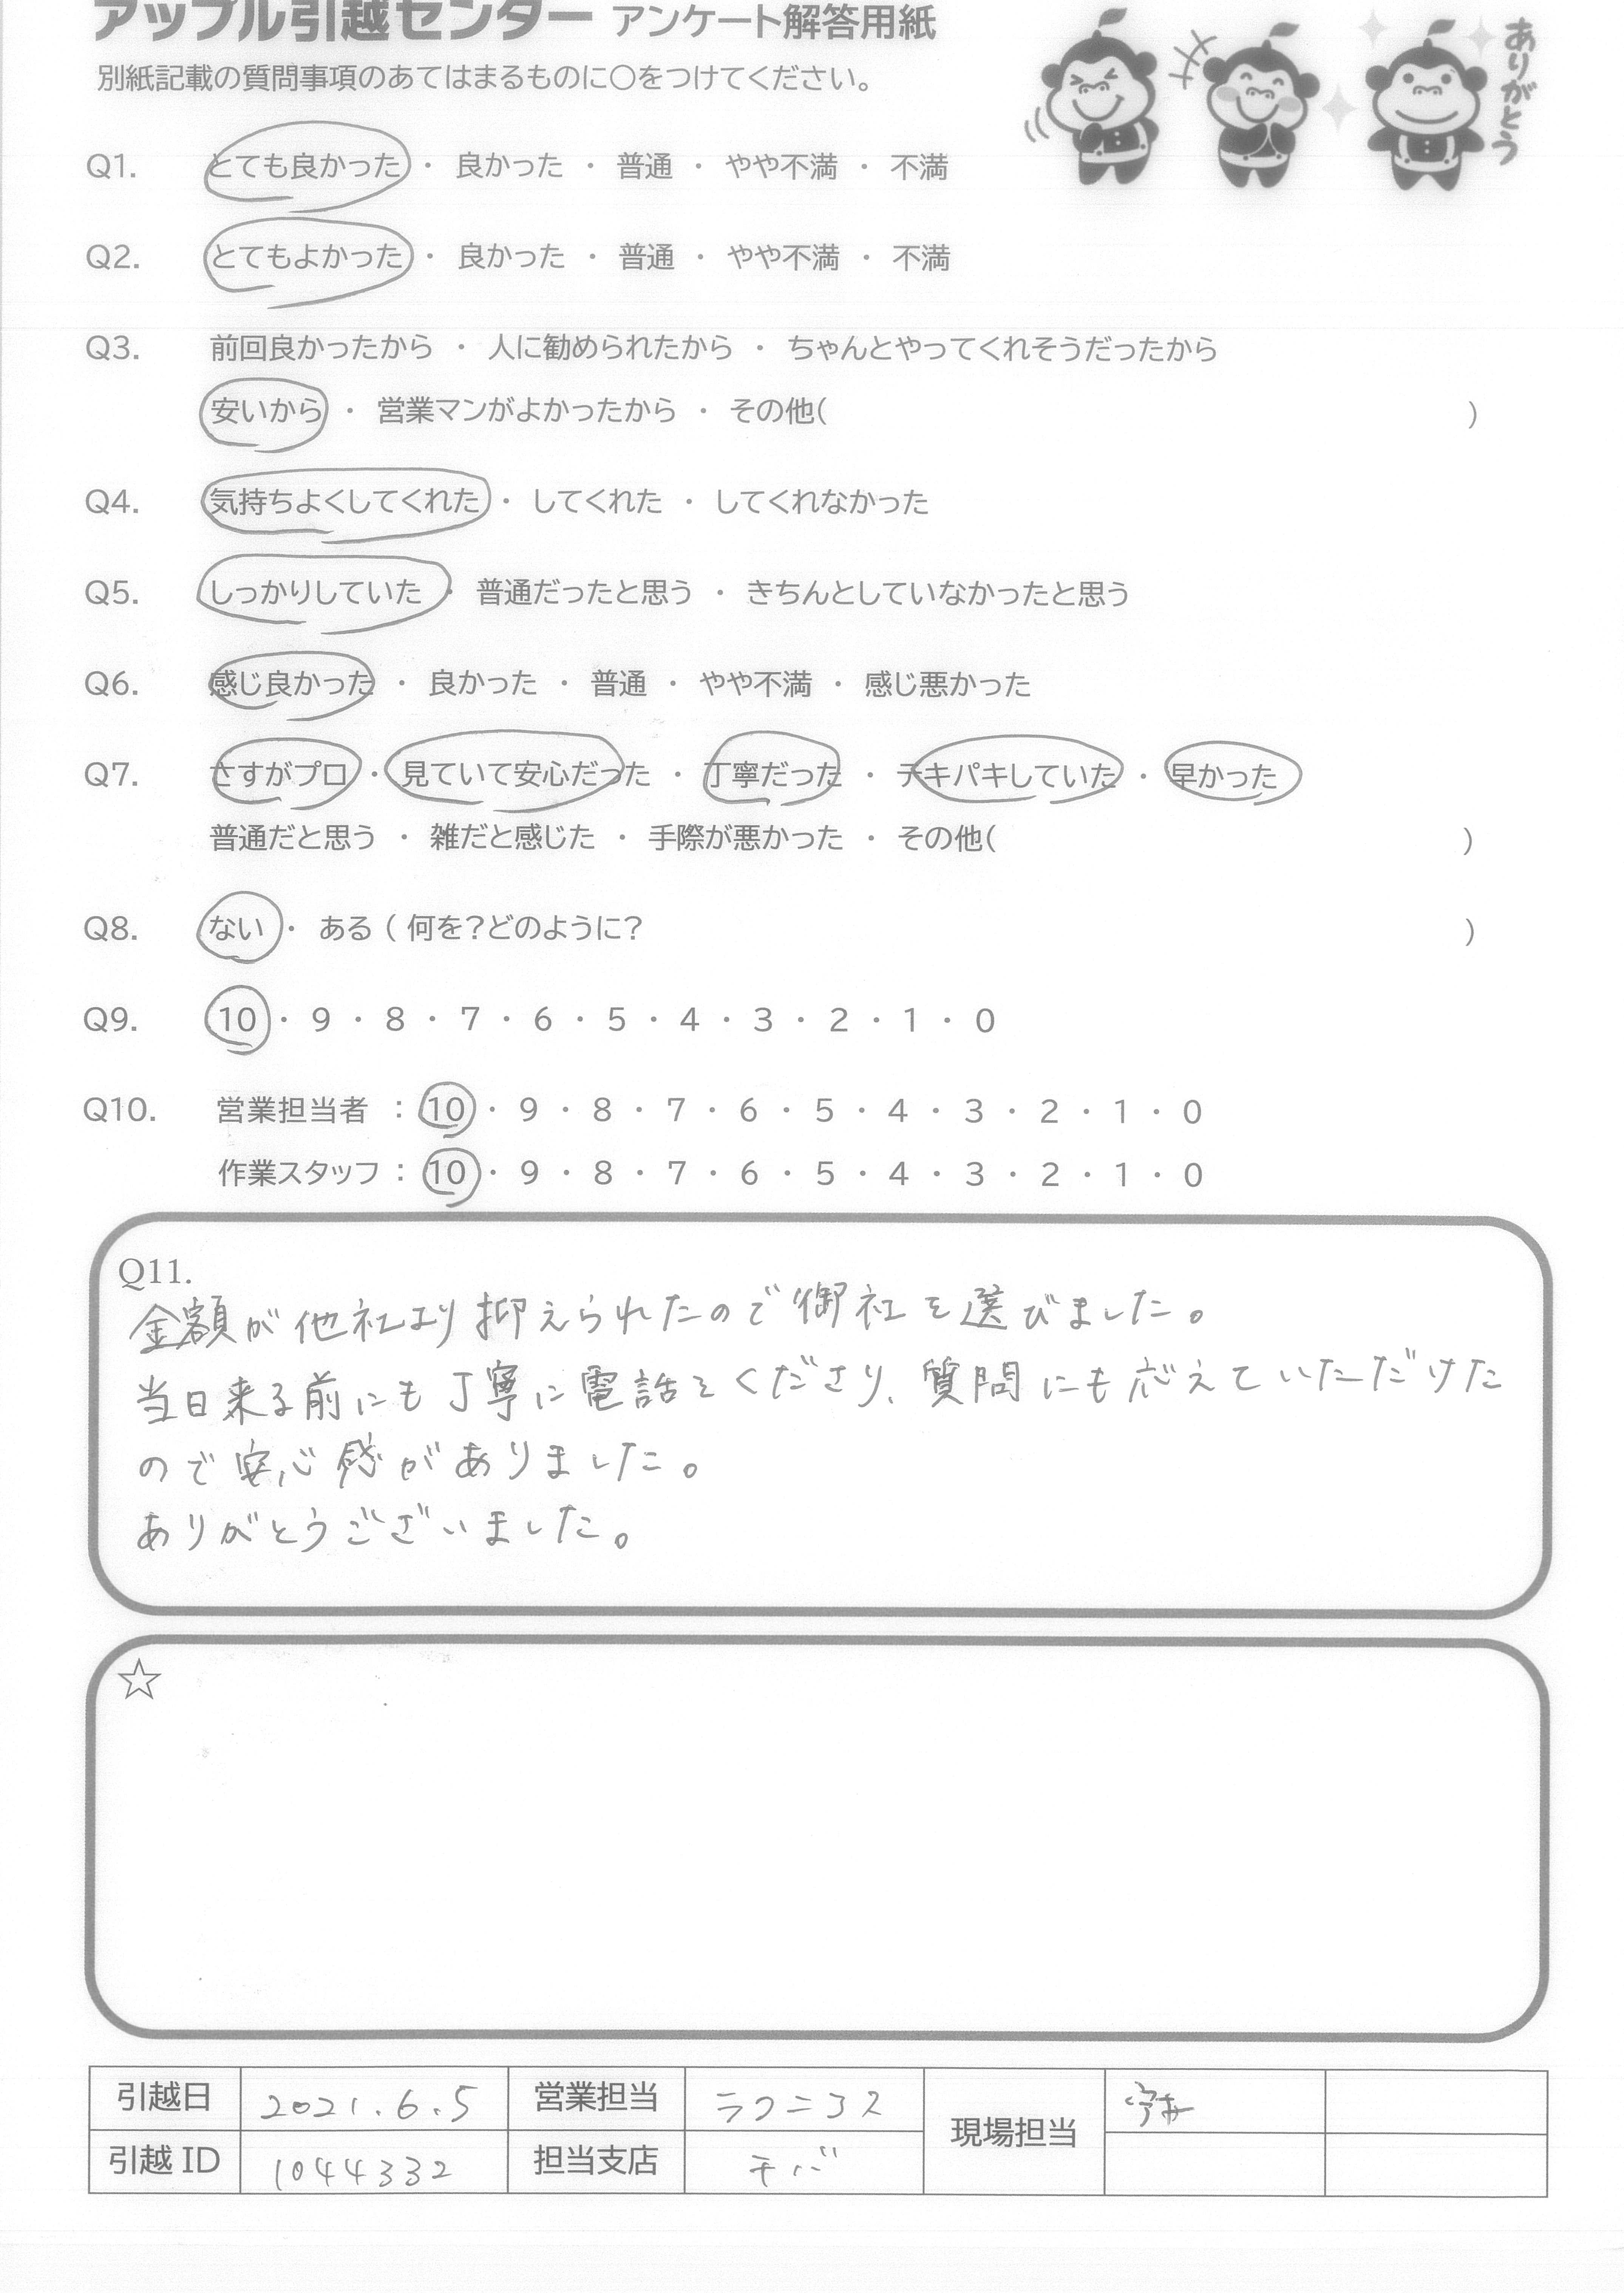 アップル引越センター アンケート解答用紙
別紙記載の質問事項のあてはまるものに○をつけてください。
ありがとう
Q1. とても良かった ・ 良かった ・ 普通 ・ やや不満 ・ 不満
Q2. とてもよかった ・ 良かった ・ 普通 ・ やや不満 ・ 不満
Q3. 前回良かったから ・ 人に勧められたから ・ ちゃんとやってくれそうだったから
安いから ・ 営業マンがよかったから ・ その他( )
Q4. 気持ちよくしてくれた ・ してくれた ・ してくれなかった
Q5. しっかりしていた ・ 普通だったと思う ・ きちんとしていなかったと思う
Q6. 感じ良かった ・ 良かった ・ 普通 ・ やや不満 ・ 感じ悪かった
Q7. さすがプロ ・ 見ていて安心だった ・ 丁寧だった ・ テキパキしていた ・ 早かった
普通だと思う ・ 雑だと感じた ・ 手際が悪かった ・ その他( )
Q8. ない ・ ある ( 何を?どのように? )
Q9. 10 ・ 9 ・ 8 ・ 7 ・ 6 ・ 5 ・ 4 ・ 3 ・ 2 ・ 1 ・ 0
Q10. 営業担当者 : 10 ・ 9 ・ 8 ・ 7 ・ 6 ・ 5 ・ 4 ・ 3 ・ 2 ・ 1 ・ 0
作業スタッフ : 10 ・ 9 ・ 8 ・ 7 ・ 6 ・ 5 ・ 4 ・ 3 ・ 2 ・ 1 ・ 0
Q11.
金額が他社より抑えられたので御社を選びました。
当日来る前にも丁寧に電話をくださり、質問にも応えていただけた
ので安心感がありました。
ありがとうございました。
☆
引越日 2021.6.5 営業担当 ラクニコス 現場担当
引越ID 1044332 担当支店 チバ